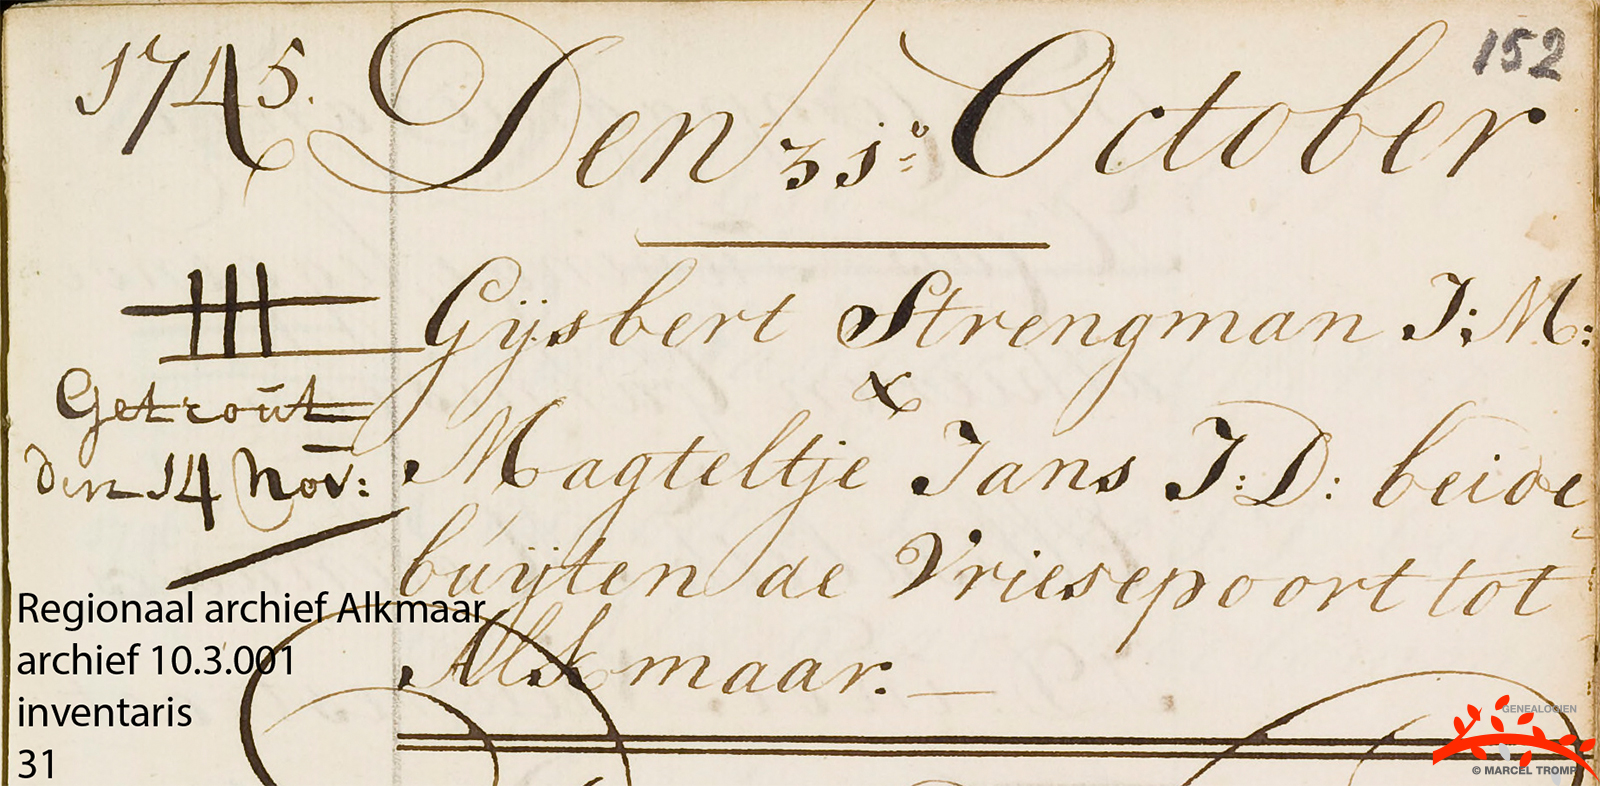 1745. Den 31:º October
152
Gijsbert Strengman J:M:
&
Getroût
den 14 Nov:
Magteltje Jans J:D: beide
buijten de Vriesepoort tot
Alkmaar.
Regionaal archief Alkmaar
archief 10.3.001
inventaris
31
GENEALOGIEN
© MARCEL TROMP